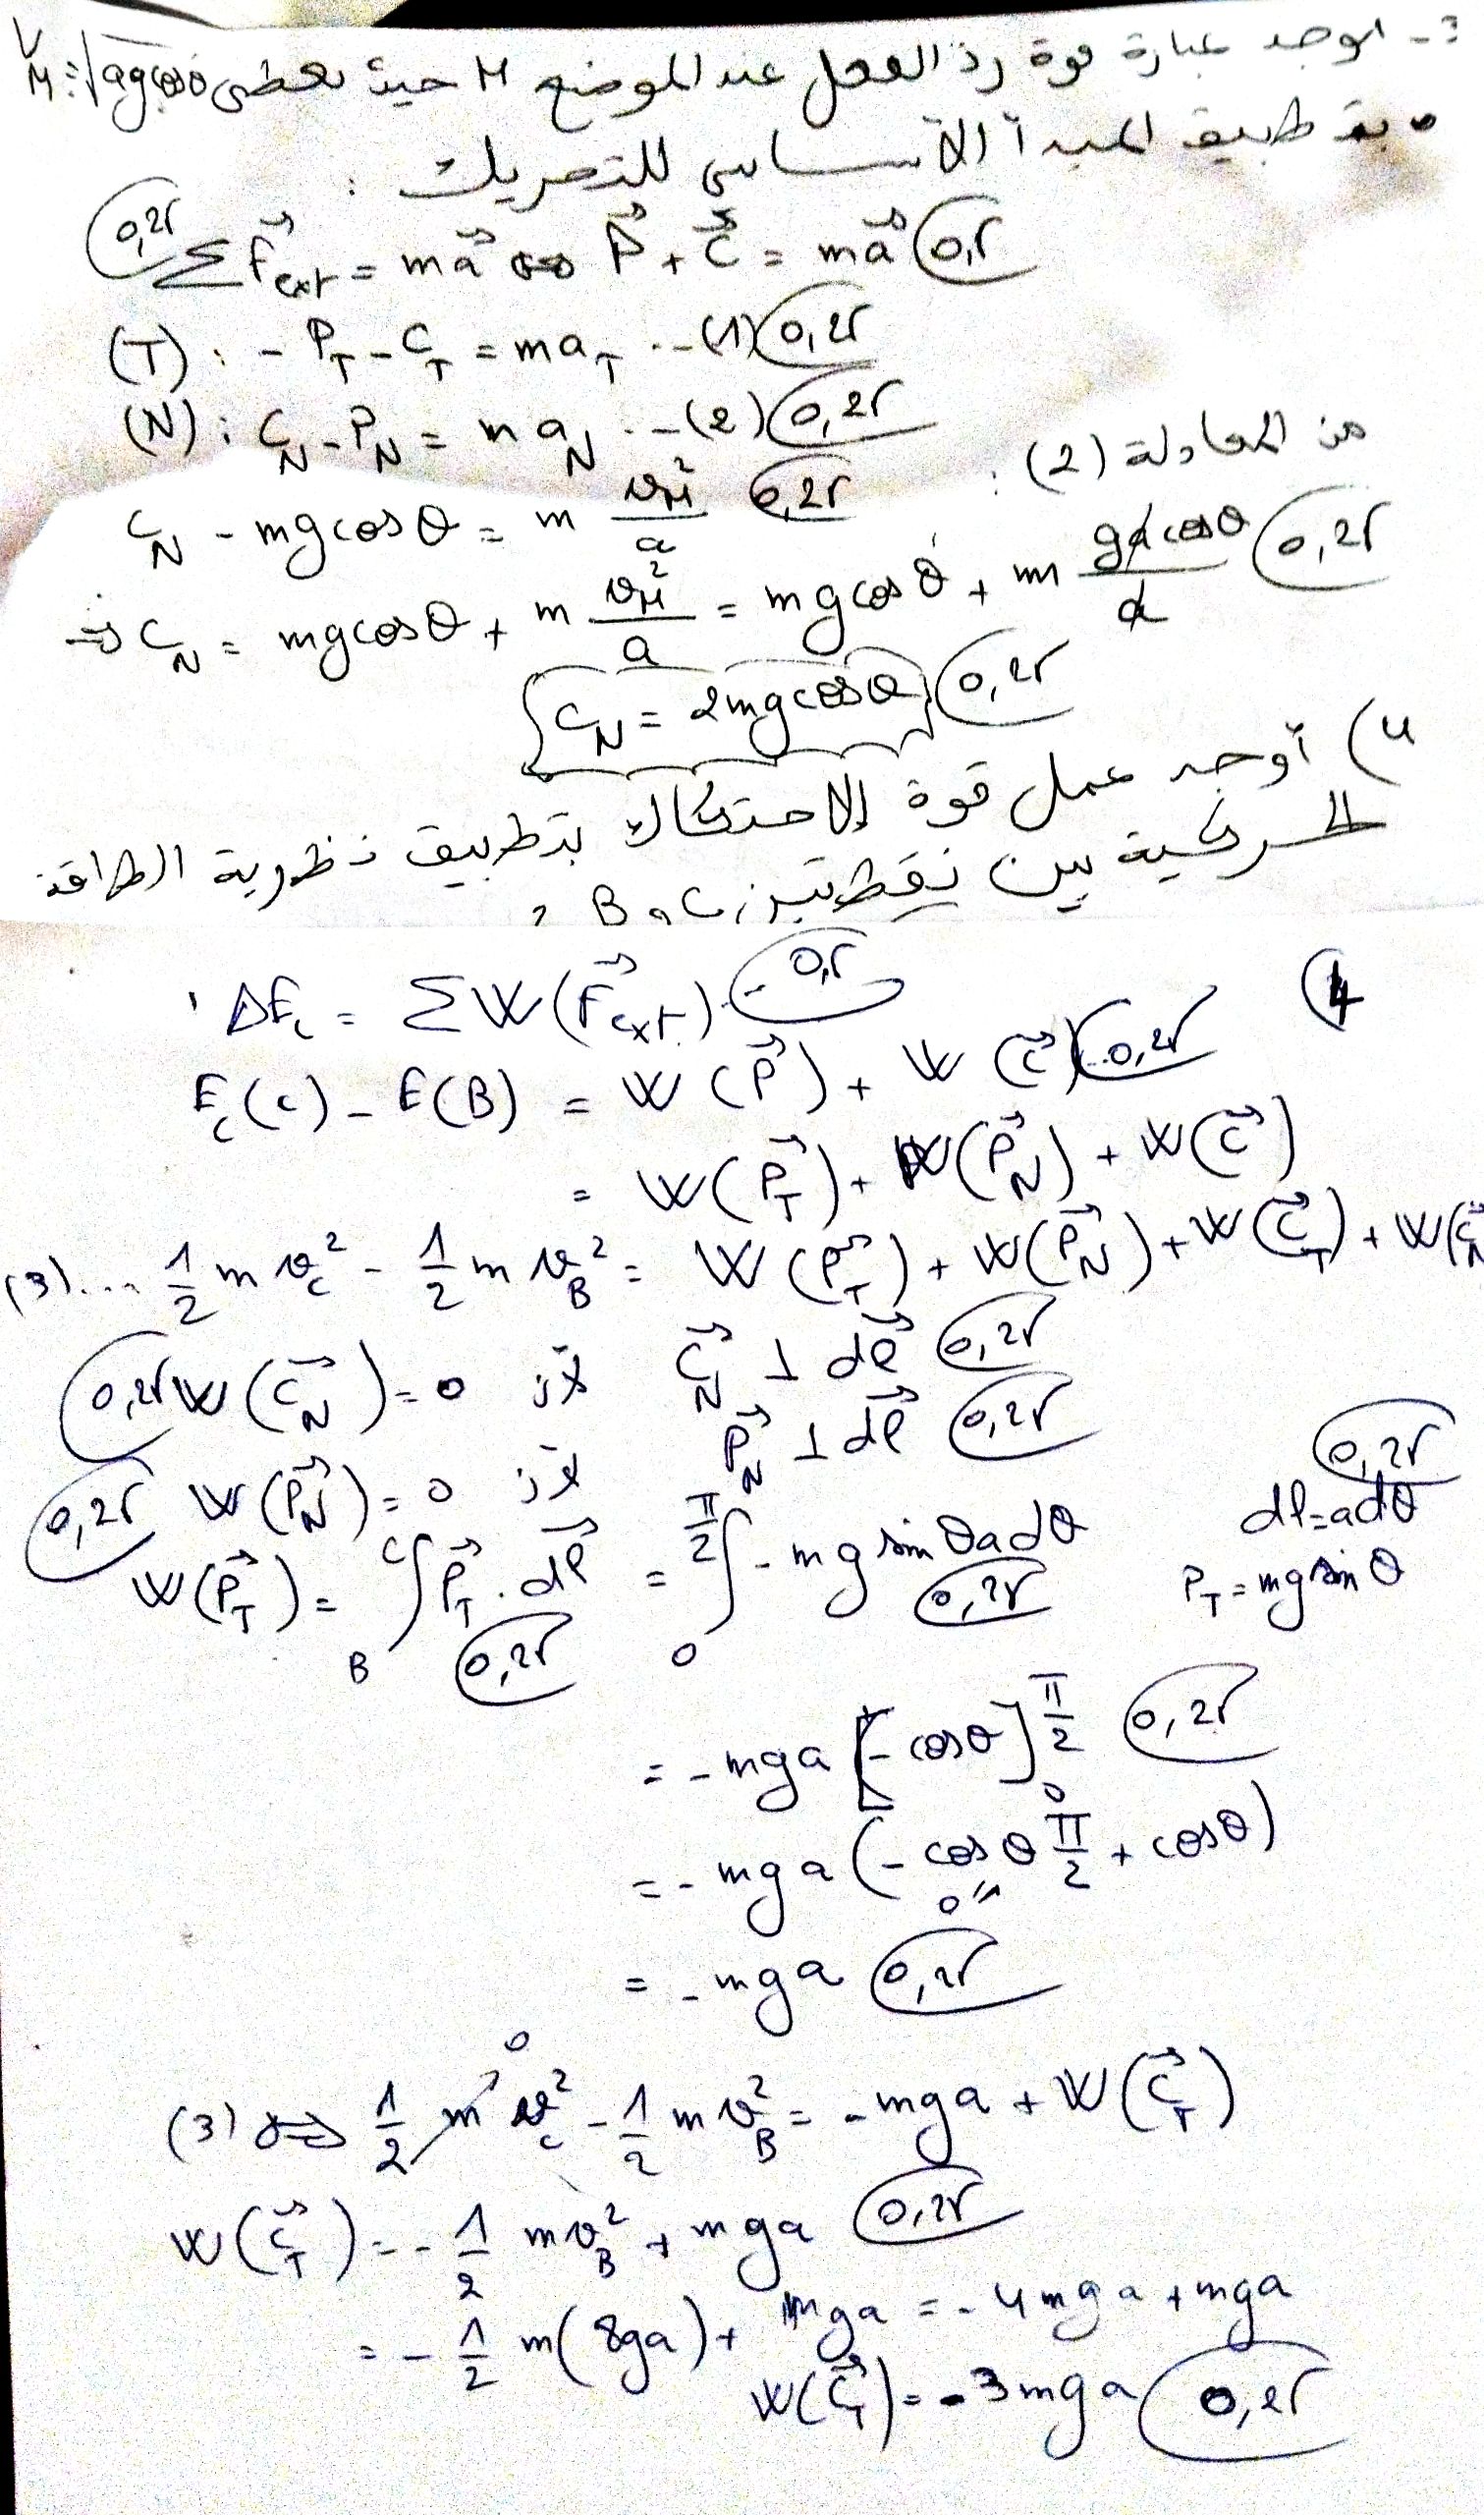 3- اوجد عبارة قوة رد الفعل عند الموضع M حيث تعطى V_M = √(ag cosθ)
• بتطبيق المبدأ الأساسي للتحريك :
0,25 Σ F⃗ext = ma⃗ ⇔ P⃗ + C⃗ = ma⃗ 0,5
(T) : - P_T - C_T = ma_T ... (1) 0,25
(N) : C_N - P_N = m a_N ... (2) 0,25
من المعادلة (2) :
C_N - mg cosθ = m v_M²/a 0,25
⇒ C_N = mg cosθ + m v_M²/a = mg cosθ + m ga cosθ/a 0,25
C_N = 2mg cosθ 0,25
4) أوجد عمل قوة الاحتكاك بتطبيق نظرية الطاقة
الحركية بين نقطتين C و B ,
4)
ΔE_c = Σ W(F⃗ext) ... 0,5
E_c(C) - E(B) = W(P⃗) + W(C⃗) 0,25
= W(P⃗_T) + W(P⃗_N) + W(C⃗)
(3)... 1/2 m v_C² - 1/2 m v_B² = W(P⃗_T) + W(P⃗_N) + W(C⃗_T) + W(C⃗_N
0,25 W(C⃗_N) = 0 لأن C⃗_N ⊥ dl⃗ 0,25
0,25 W(P⃗_N) = 0 لأن P⃗_N ⊥ dl⃗ 0,25
0,25
dl = adθ
W(P⃗_T) = ∫_B^C P⃗_T . dl⃗ 0,25 = ∫_0^{π/2} - mg sinθ adθ 0,25
P_T = mg sinθ
= - mga [- cosθ]_0^{π/2} 0,25
= - mga (- cosθ π/2 + cosθ)
0 "
= - mga 0,25
0
(3) ⇔ 1/2 m v_C² - 1/2 m v_B² = - mga + W(C⃗_T)
W(C⃗_T) = - 1/2 m v_B² + mga 0,25
= - 1/2 m(8ga) + mga = - 4mga + mga
W(C⃗_T) = - 3mga 0,25